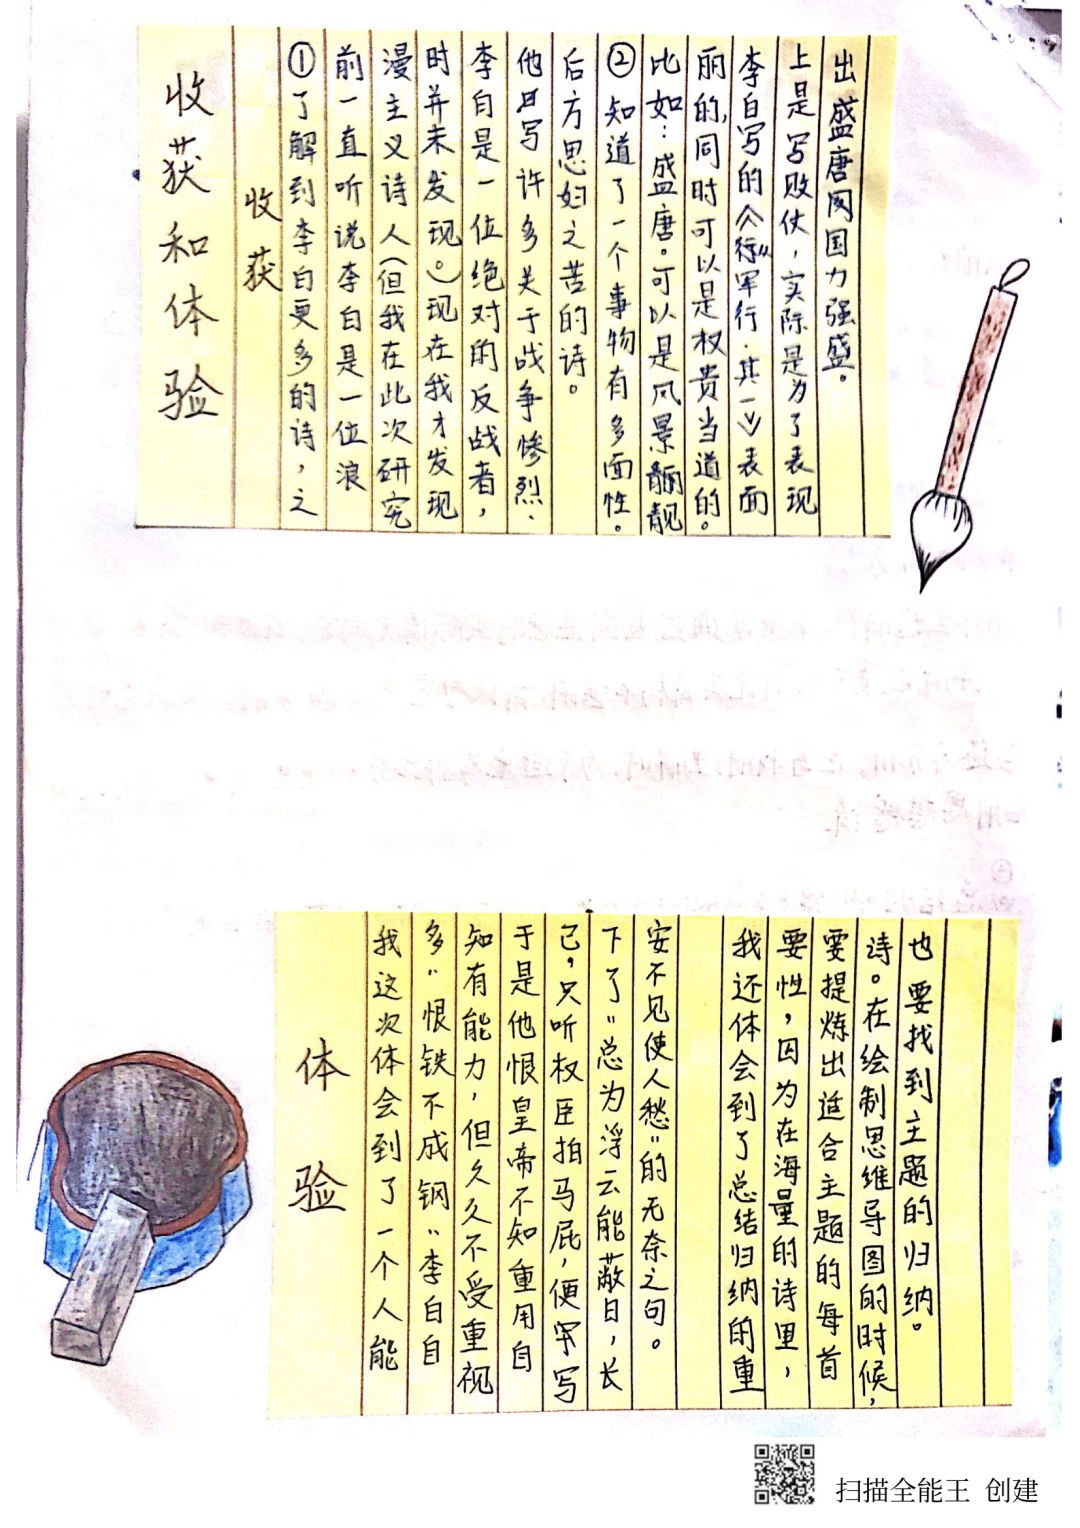 收获和体验
收获
①了解到李白更多的诗，之
前一直听说李白是一位浪
漫主义诗人(但我在此次研究
时并未发现。)现在我才发现
李白是一位绝对的反战者，
他写许多关于战争惨烈、
后方思妇之苦的诗。
②知道了一个事物有多面性。
比如：盛唐。可以是风景靓
丽的，同时可以是权贵当道的。
李白写的《从军行·其一》表面
上是写败仗，实际是为了表现
出盛唐国力强盛。
体验
我这次体会到了一个人能
多"恨铁不成钢"李白自
知有能力，但久久不受重视
于是他恨皇帝不知重用自
己，只听权臣拍马屁，便写
下了"总为浮云能蔽日，长
安不见使人愁"的无奈之句。
我还体会到了总结归纳的重
要性，因为在海量的诗里，
要提炼出适合主题的每首
诗。在绘制思维导图的时候，
也要找到主题的归纳。
扫描全能王 创建